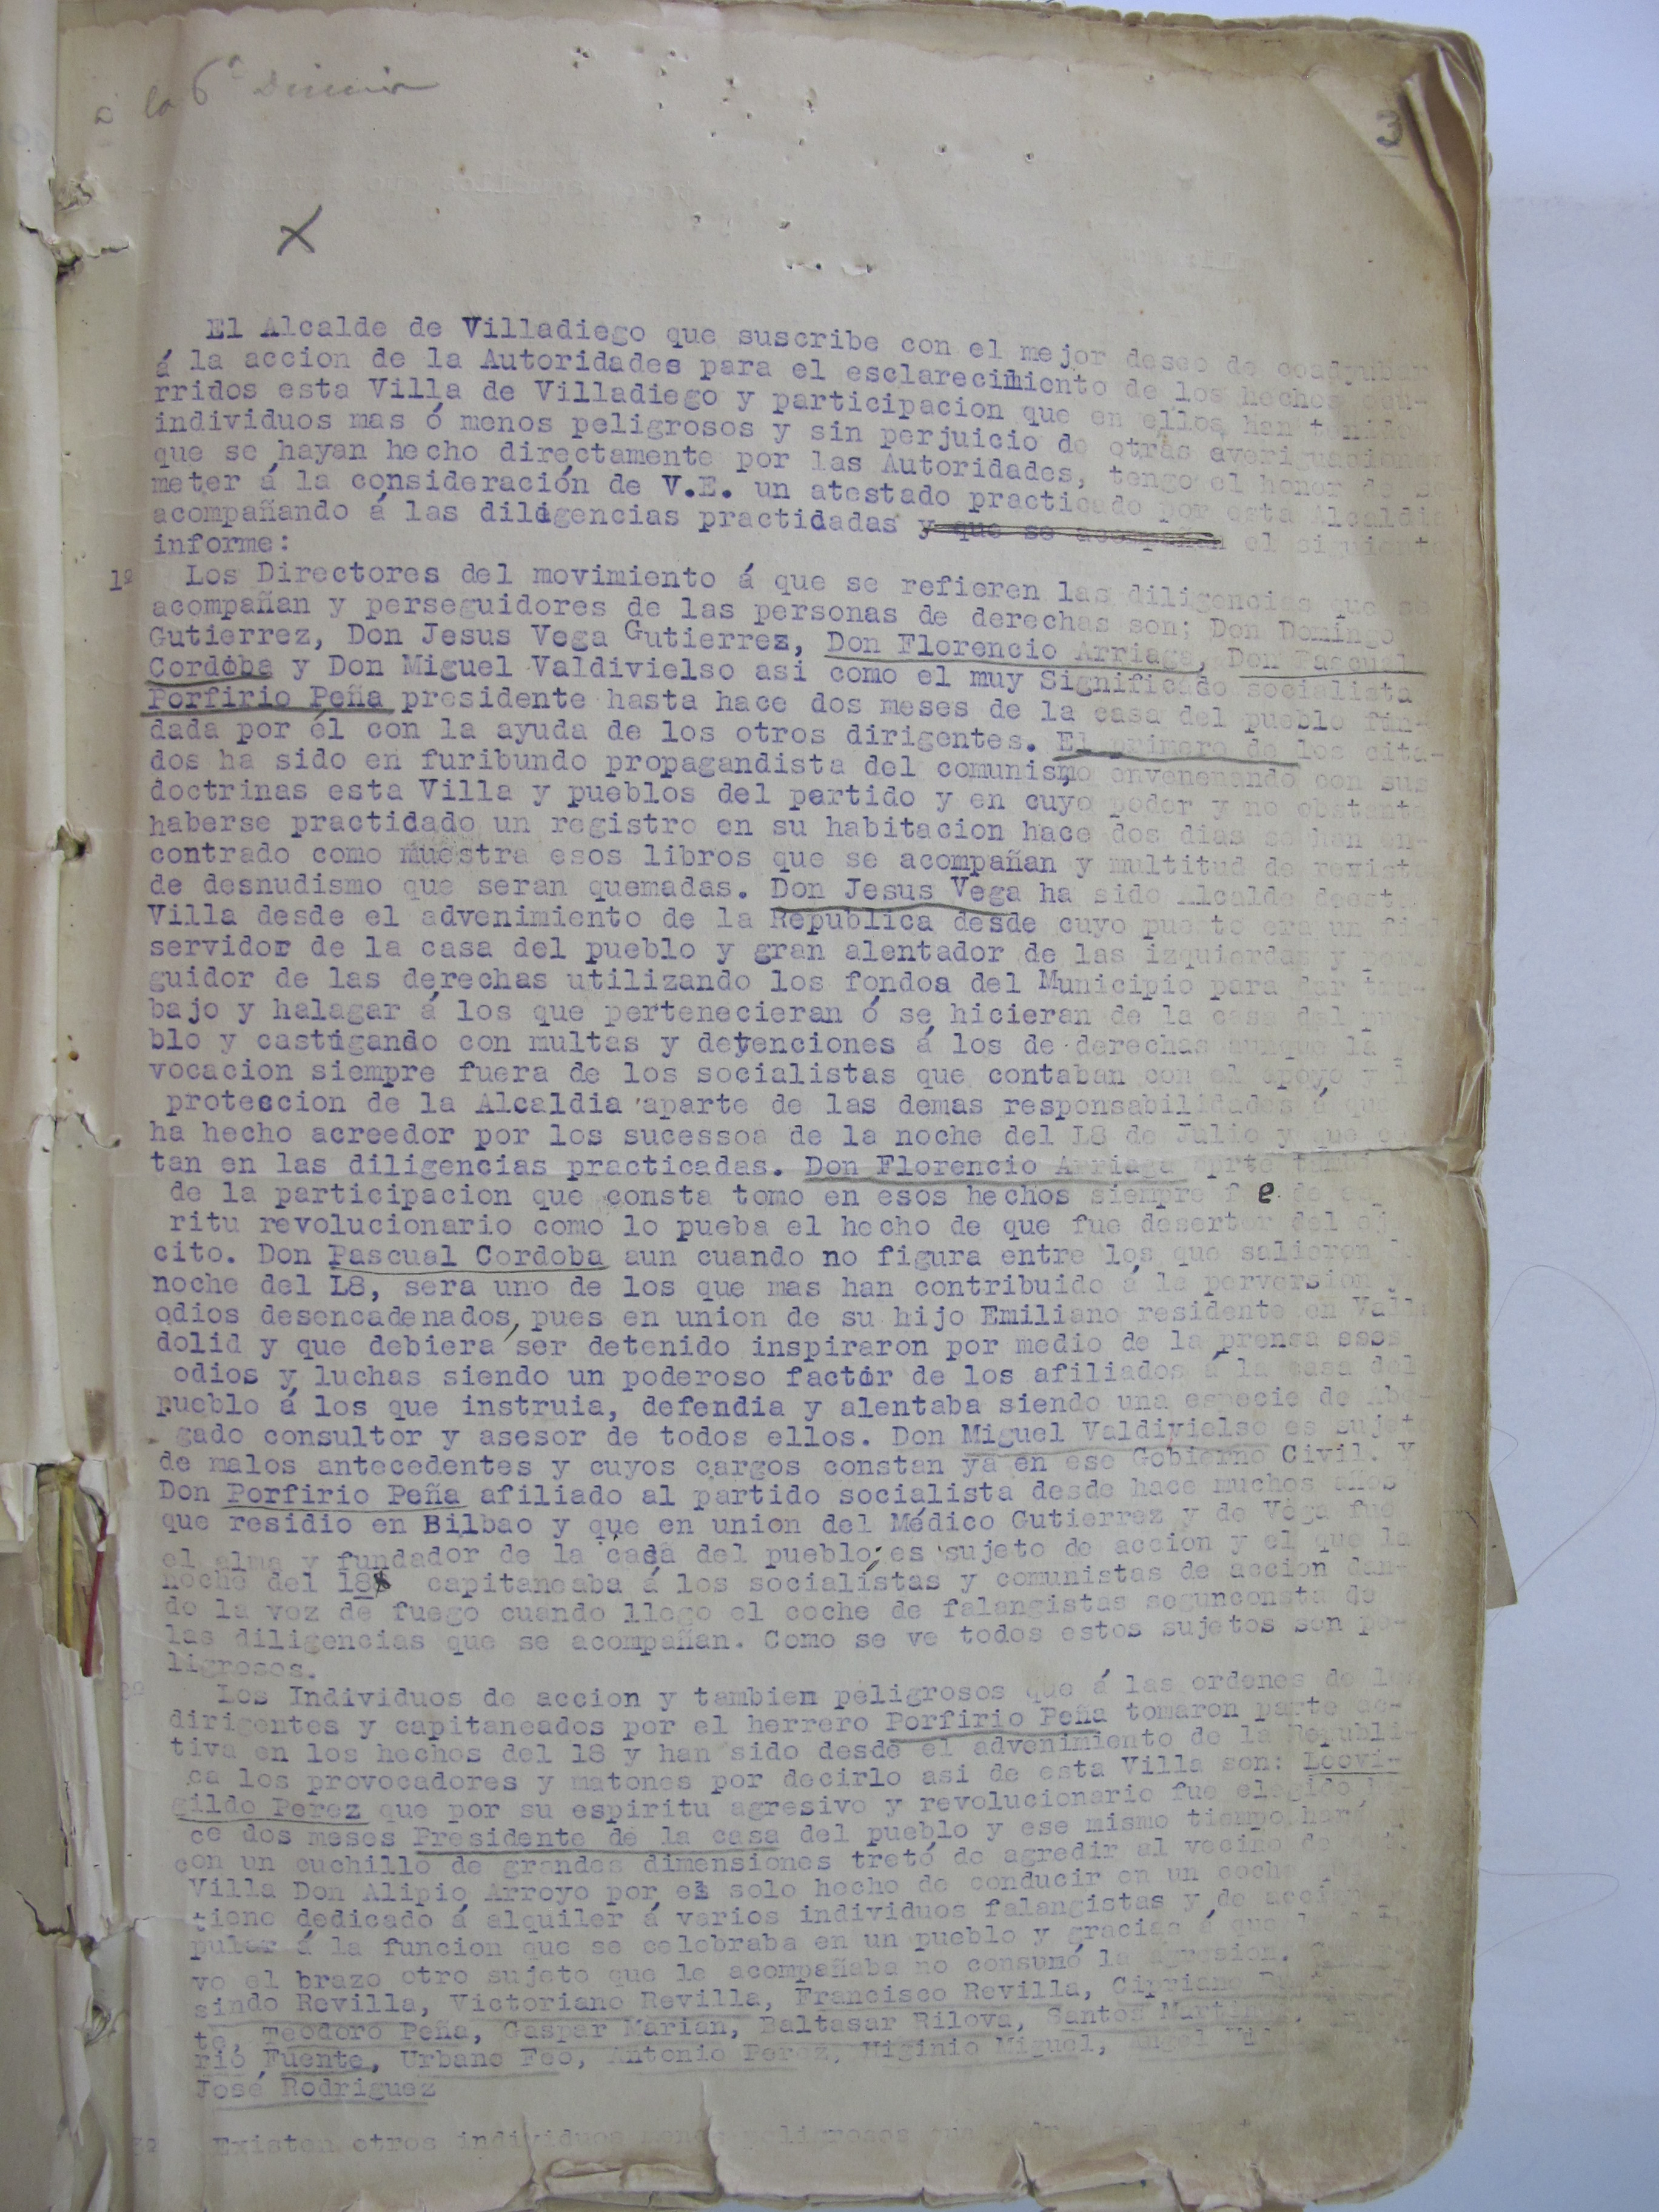 á la 6ª
3
X
El Alcalde de Villadiego que suscribe con el mejor deseo de coadyubar
á la accion de la Autoridades para el esclarecimiento de los hechos ocu-
rridos esta Villa de Villadiego y participacion que en ellos han tenido
individuos mas ó menos peligrosos y sin perjuicio de otras averiguaciones
que se hayan hecho directamente por las Autoridades, tengo el honor de so
meter á la consideración de V.E. un atestado practicado por esta Alcaldia
acompañando á las diligencias practidadas y que se acompañan el siguiente
informe:
1º Los Directores del movimiento á que se refieren las diligencias que se
acompañan y perseguidores de las personas de derechas son; Don Domingo
Gutierrez, Don Jesus Vega Gutierrez, Don Florencio Arriaga, Don Pascual
Cordoba y Don Miguel Valdivielso asi como el muy Significado socialista
Porfirio Peña presidente hasta hace dos meses de la casa del pueblo fun-
dada por él con la ayuda de los otros dirigentes. El primero de los cita-
dos ha sido en furibundo propagandista del comunismo envenenando con sus
doctrinas esta Villa y pueblos del partido y en cuyo poder y no obstante
haberse practidado un registro en su habitacion hace dos dias se han en-
contrado como muestra esos libros que se acompañan y multitud de revistas
de desnudismo que seran quemadas. Don Jesus Vega ha sido Alcalde deesta
Villa desde el advenimiento de la Republica desde cuyo puesto era un fi
servidor de la casa del pueblo y gran alentador de las izquierdas y pers
guidor de las derechas utilizando los fondoa del Municipio para dar tra-
bajo y halagar á los que pertenecieran ó se hicieran de la casa del pue
blo y castigando con multas y detenciones á los de derechas aunque la
vocacion siempre fuera de los socialistas que contaban con el apoyo y la
proteccion de la Alcaldia aparte de las demas responsabilidades á que
ha hecho acreedor por los sucessoa de la noche del L8 de Julio y que
tan en las diligencias practicadas. Don Florencio Arriaga aprte tambi
de la participacion que consta tomo en esos hechos siempre f e de
ritu revolucionario como lo pueba el hecho de que fue desertor del ej
cito. Don Pascual Cordoba aun cuando no figura entre los que salieron la
noche del L8, sera uno de los que mas han contribuido á la perversion y
odios desencadenados, pues en union de su hijo Emiliano residente en Valla
dolid y que debiera ser detenido inspiraron por medio de la prensa esos
odios y luchas siendo un poderoso factor de los afiliados á la casa del
pueblo á los que instruia, defendia y alentaba siendo una especie de Abo-
gado consultor y asesor de todos ellos. Don Miguel Valdivielso es sujeto
de malos antecedentes y cuyos cargos constan ya en ese Gobierno Civil. Y
Don Porfirio Peña afiliado al partido socialista desde hace muchos años
que residio en Bilbao y que en union del Médico Gutierrez y de Vega fue
el alma y fundador de la casa del pueblo; es sujeto de accion y el que la
noche del 18 capitaneaba á los socialistas y comunistas de accion dan-
do la voz de fuego cuando llego el coche de falangistas segunconsta de
las diligencias que se acompañan. Como se ve todos estos sujetos son pe-
ligrosos.
Los Individuos de accion y tambien peligrosos que á las ordenes de los
dirigentes y capitaneados por el herrero Porfirio Peña tomaron parte ac-
tiva en los hechos del 18 y han sido desde el advenimiento de la Republi-
ca los provocadores y matones por decirlo asi de esta Villa son: Leovi-
gildo Perez que por su espiritu agresivo y revolucionario fue elegido
ce dos meses Presidente de la casa del pueblo y ese mismo tiempo hará
con un cuchillo de grandes dimensiones tretó de agredir al vecino de
Villa Don Alipio Arroyo por el solo hecho de conducir en un coche que
tiene dedicado á alquiler á varios individuos falangistas y de accion
pular á la funcion que se celebraba en un pueblo y gracias á que
vo el brazo otro sujeto que le acompañaba no consumó la agresion.
sindo Revilla, Victoriano Revilla, Francisco Revilla, Cipriano
te, Teodoro Peña, Gaspar Marian, Baltasar Rilova, Santos Martin
rio Fuente, Urbano Feo, Antonio Perez, Higinio Miguel,
José Rodriguez
3º Existen otros individuos menos peligrosos